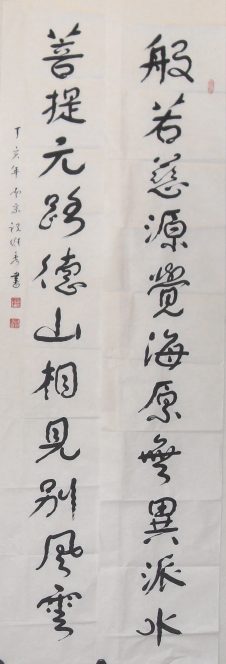 般若慈源覺海原無異派水
菩提元路德山相見別風雲
丁亥年 南京 祝 書